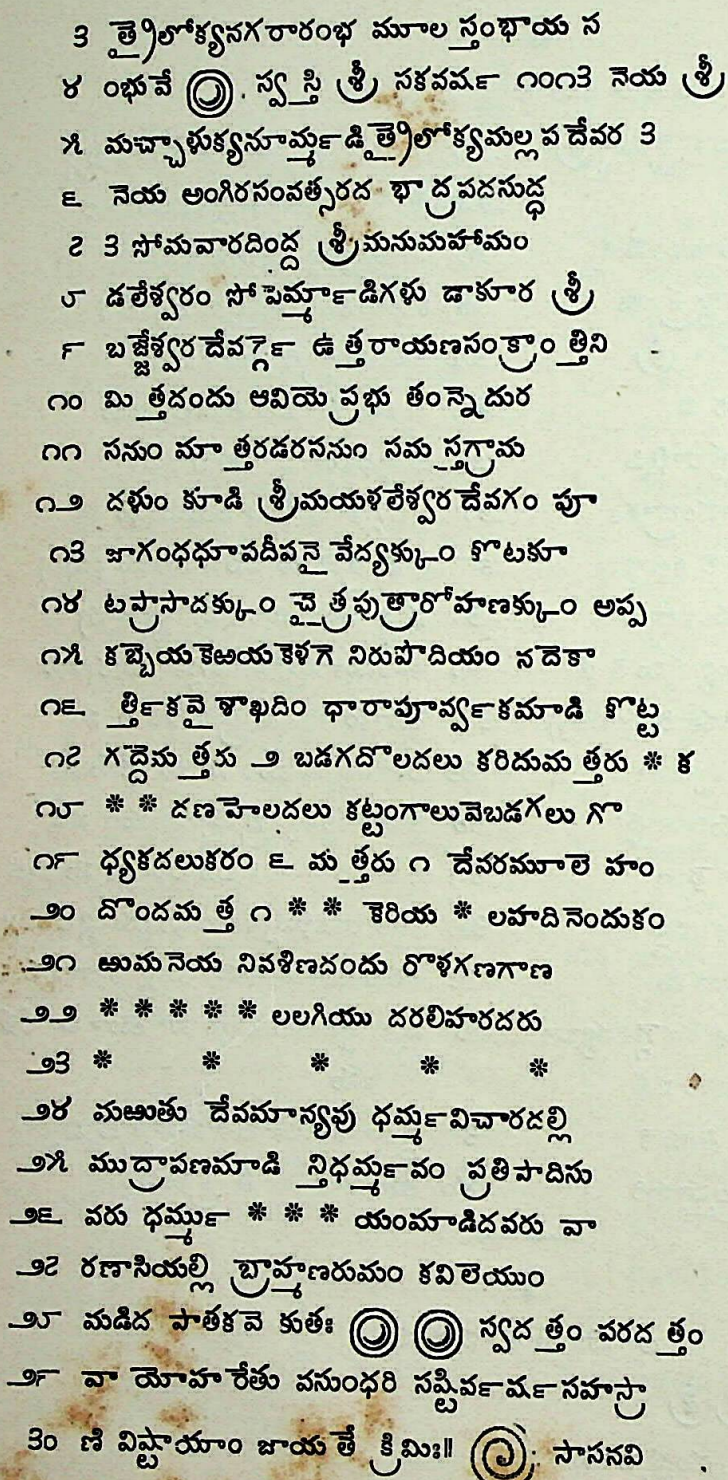 ౩ త్రైలోక్యనగరారంభ మూల స్తంభాయ స
౪ ంభువే ◎. స్వ స్తి శ్రీ సకవర్ష ౧౦౧౩ నెయ శ్రీ
౫ మచ్చాళుక్యనూర్మ్మడి త్రైలోక్యమల్ల ప దేవర ౩
౬ నెయ అంగిరసంవత్సరద భాద్రపదసుద్ధ
౭ ౩ సోమవారదింద్ద శ్రీమనుమహామం
౮ డలేశ్వరం సోపెర్మ్మాడిగళు డాకూర శ్రీ
౯ బజ్జేశ్వర దేవర్గ్గె ఉత్తరాయణసంక్రాం త్తిని
౧౦ మి త్తదందు ఆవియె ప్రభు తంన్నెదుర
౧౧ సనుం మా త్తరడరసనుం సమ స్తగ్రామ
౧౨ దళుం కూడి శ్రీమయళలేశ్వర దేవగం పూ
౧౩ జాగంధధూపదీపనై వేద్యక్కుం కొటకూ
౧౪ టప్రాసాదక్కుం చైత్రపుత్రారోహణక్కుం అప్ప
౧౫ కబ్బెయకెఱయకెళగె నిరుపొదియం నదెకా
౧౬ ర్త్తికవైశాఖదిం ధారాపూర్వ్వకమాడి కొట్ట
౧౭ గద్దెమ త్తరు ౨ బడగదొలదలు కరిదుమ త్తరు * క
౧౮ * * డణహెలదలు కట్టంగాలువెబడగలు గొ
౧౯ ధ్యకదలుకరం ౬ మ త్తరు ౧ దేవరమూలె హం
౨౦ దొందమ త్త ౧ * * కెరియ * లహదినెందుకం
౨౧ ఱుమనెయ నివళిణదందు రొళగణగాణ
౨౨ * * * * * లలగియు దరలిహరదరు
౨౩ * * * * *
౨౪ మఱుతు దేవమాన్యవు ధర్మ్మవిచారదల్లి
౨౫ ముద్రాపణమాడి న్తిధర్మ్మవం ప్రతిపాదిసు
౨౬ వరు ధర్మ్ము * * * యంమాడిదవరు వా
౨౭ రణాసియల్లి బ్రాహ్మణరుమం కవిలెయుం
౨౮ మడిద పాతకవె కుతః ◎ ◎ స్వద త్తం పరద త్తం
౨౯ వా యోహరేతు వసుంధరి సష్టిర్వర్షసహస్రా
౩౦ ణి విష్టాయాం జాయతే క్రిమిః॥ ◎: సాసనవి